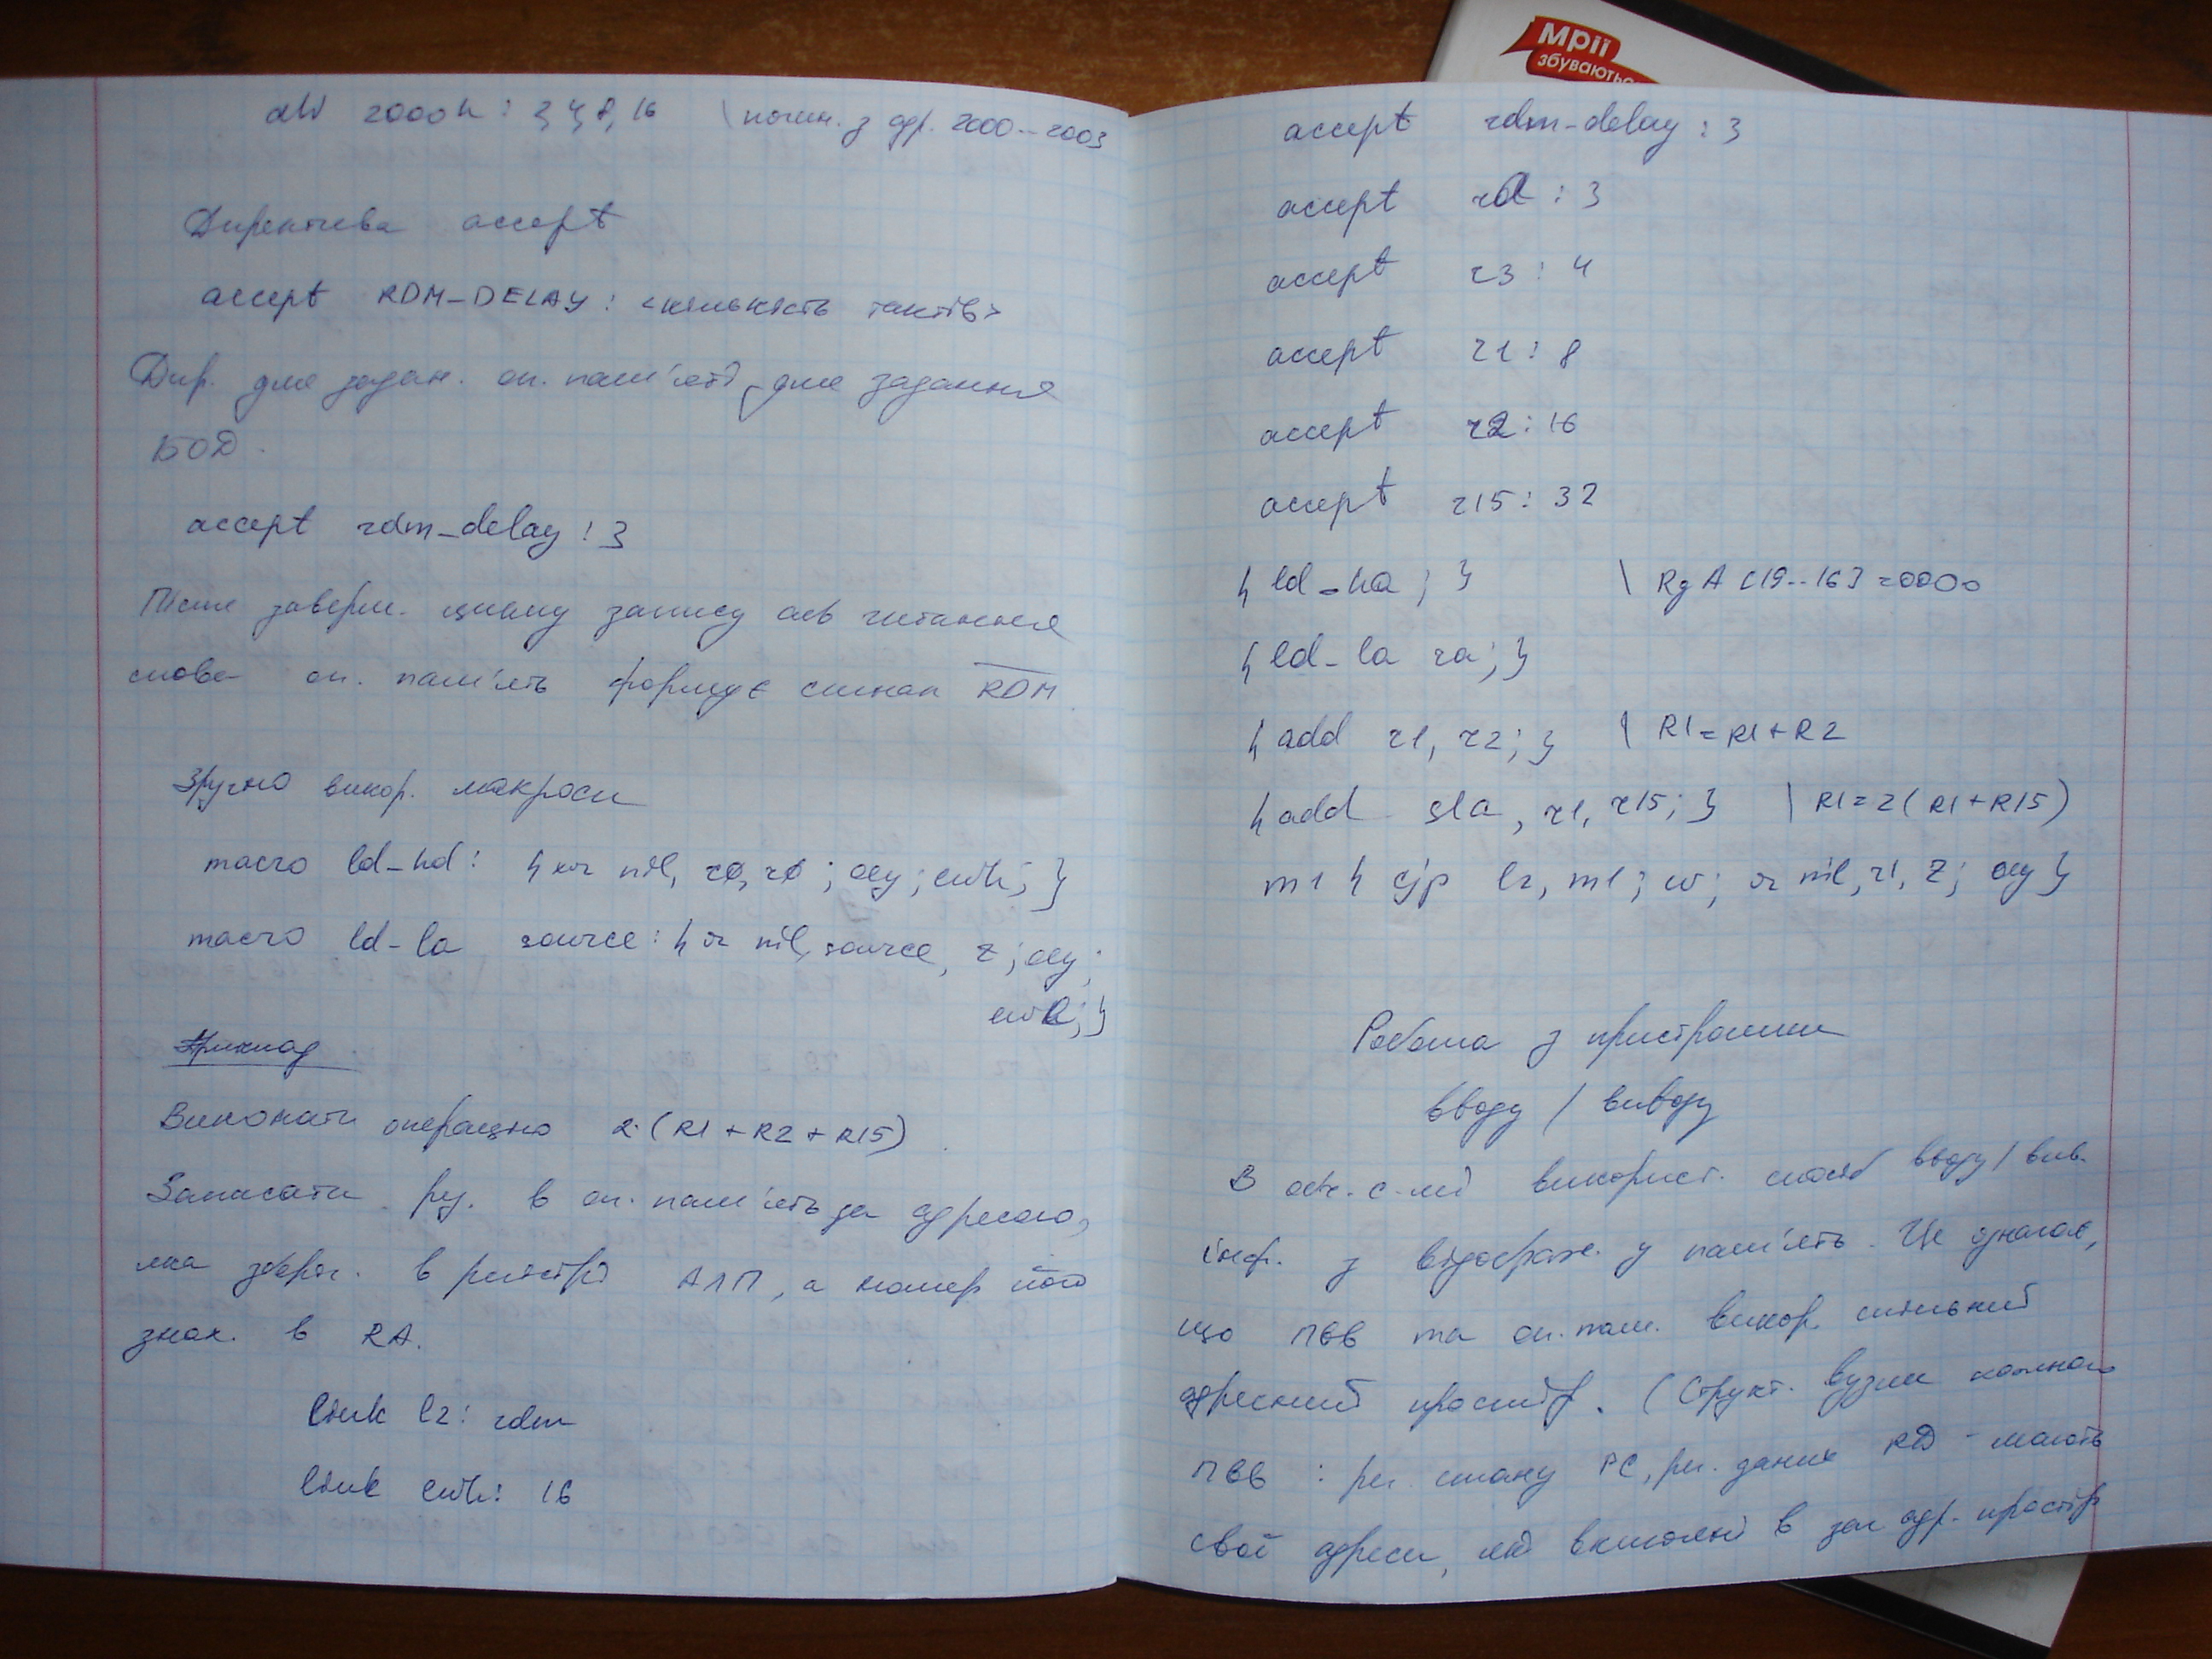 dW 2000h : 3, 4, 8, 16 \ почин. з адр. 2000..2003
Директива accept
accept RDM-DELAY : <кількість тактів>
Дир. для задан. оп. пам'яті, для задання
БОД.
accept rdm_delay : 3
Після заверш. циклу запису або читання
слова оп. пам'ять формує сигнал RDM
Зручно викор. макроси
macro ld-hd : { xor nil, r0, r0 ; oey ; ewh; }
macro ld-la source : { or nil, source, z ; oey ;
ewl; }
Приклад
Виконати операцію 2·(R1 + R2 + R15)
Записати рез. в оп. пам'ять за адресою,
яка зберіг. в регістрі АЛП, а номер його
знах. в RA.
link l2 : rdm
link ewh : 16
Мрії
збуваютьс
accept rdm-delay : 3
accept ra : 3
accept r3 : 4
accept r1 : 8
accept r2 : 16
accept r15 : 32
{ ld-ha ; } \ RgA [19..16] = 0000
{ ld-la ra; }
{ add r1, r2; } \ R1 = R1 + R2
{ add sla, r1, r15; } \ R1 = 2(R1 + R15)
m1 { cjp l2, m1 ; w; or nil, r1, z; oey }
Робота з пристроями
вводу / виводу
В використ. спосіб вводу / вив.
інф. з відображ. у пам'ять. Це означає,
що ПВВ та оп. пам. викор. спільний
адресний простір. (Структ. вузли кожного
ПВВ : рег. стану РС, рег. даних RD - мають
свої адреси, які включені в заг адр. простір